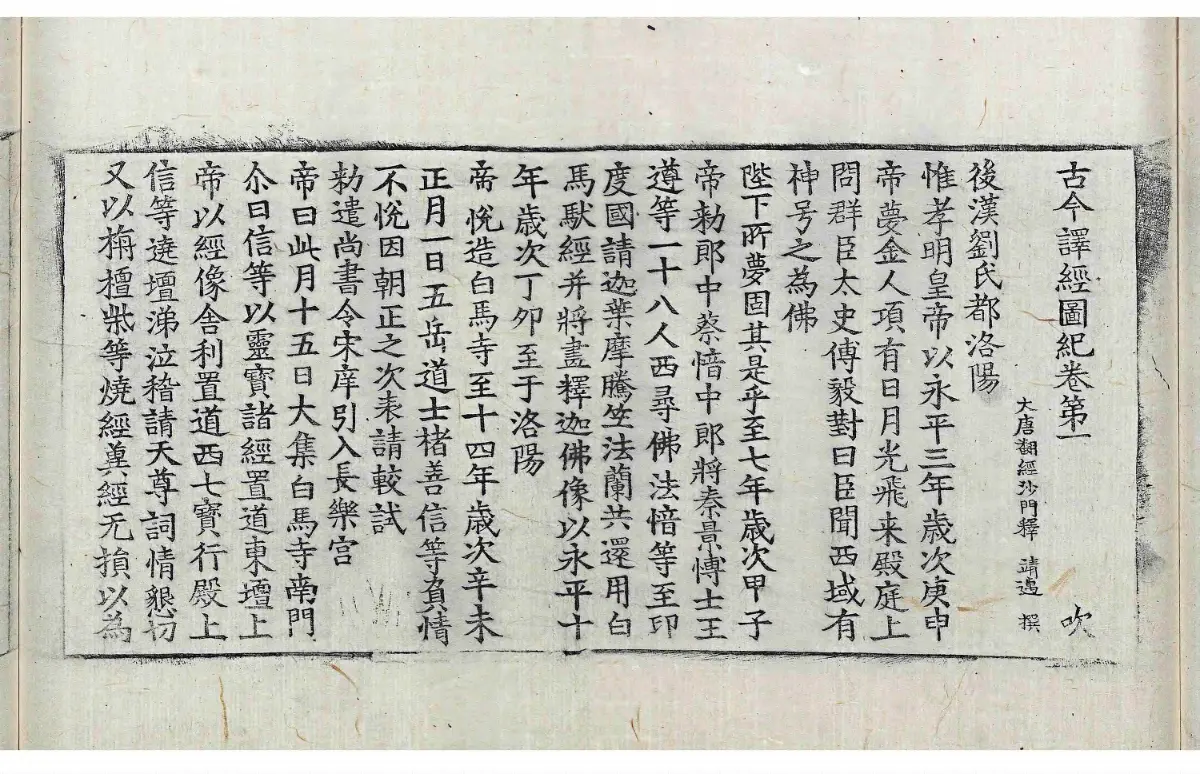 古今譯經圖紀卷第一 吹
大唐翻經沙門釋 靖邁 撰
後漢劉氏都洛陽
惟孝明皇帝以永平三年歲次庚申
帝夢金人項有日月光飛来殿庭上
問群臣太史傅毅對曰臣聞西域有
神号之為佛
陛下所夢固其是乎至七年歲次甲子
帝勑郎中蔡愔中郎將秦景博士王
遵等一十八人西尋佛法愔等至印
度國請迦葉摩騰竺法蘭共還用白
馬馱經并將畫釋迦佛像以永平十
年歲次丁夘至于洛陽
帝悅造白馬寺至十四年歲次辛未
正月一日五岳道士楮善信等負情
不悅因朝正之次表請較試
勑遣尚書令宋庠引入長樂宮
帝曰此月十五日大集白馬寺南門
尒日信等以靈寶諸經置道東壇上
帝以經像舍利置道西七寶行殿上
信等遶壇涕泣稽請天尊詞情懇切
又以栴檀柴等燒經冀經无損以為